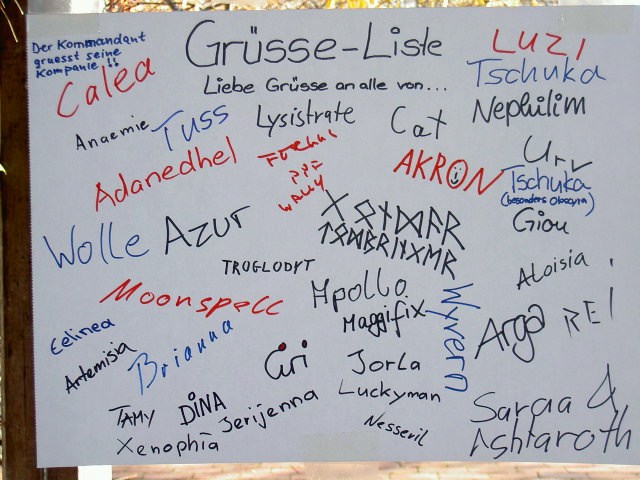 Der Kommandant
gruesst seine
Kompanie !!
GRÜSSE-LISTE
Liebe Grüsse an alle von...
LUZI
Tschuka
Calea
Anaemie
Tuss
Lysistrate
Cat
Nephilim
Adanedhel
WALLY
AKRON
Urv
Tschuka
(besonders Obscyra)
Giou
Wolle
Azur
TROGLODYT
Aloisia
Moonspell
Apollo
Maggifix
Wyvern
Arga
REI
Eelinea
Artemisia
Brianna
Ciri
Jorla
Luckyman
TAMY
DINA
Jerijenna
Nesseril
Xenophia
Saraa &
Ashtaroth